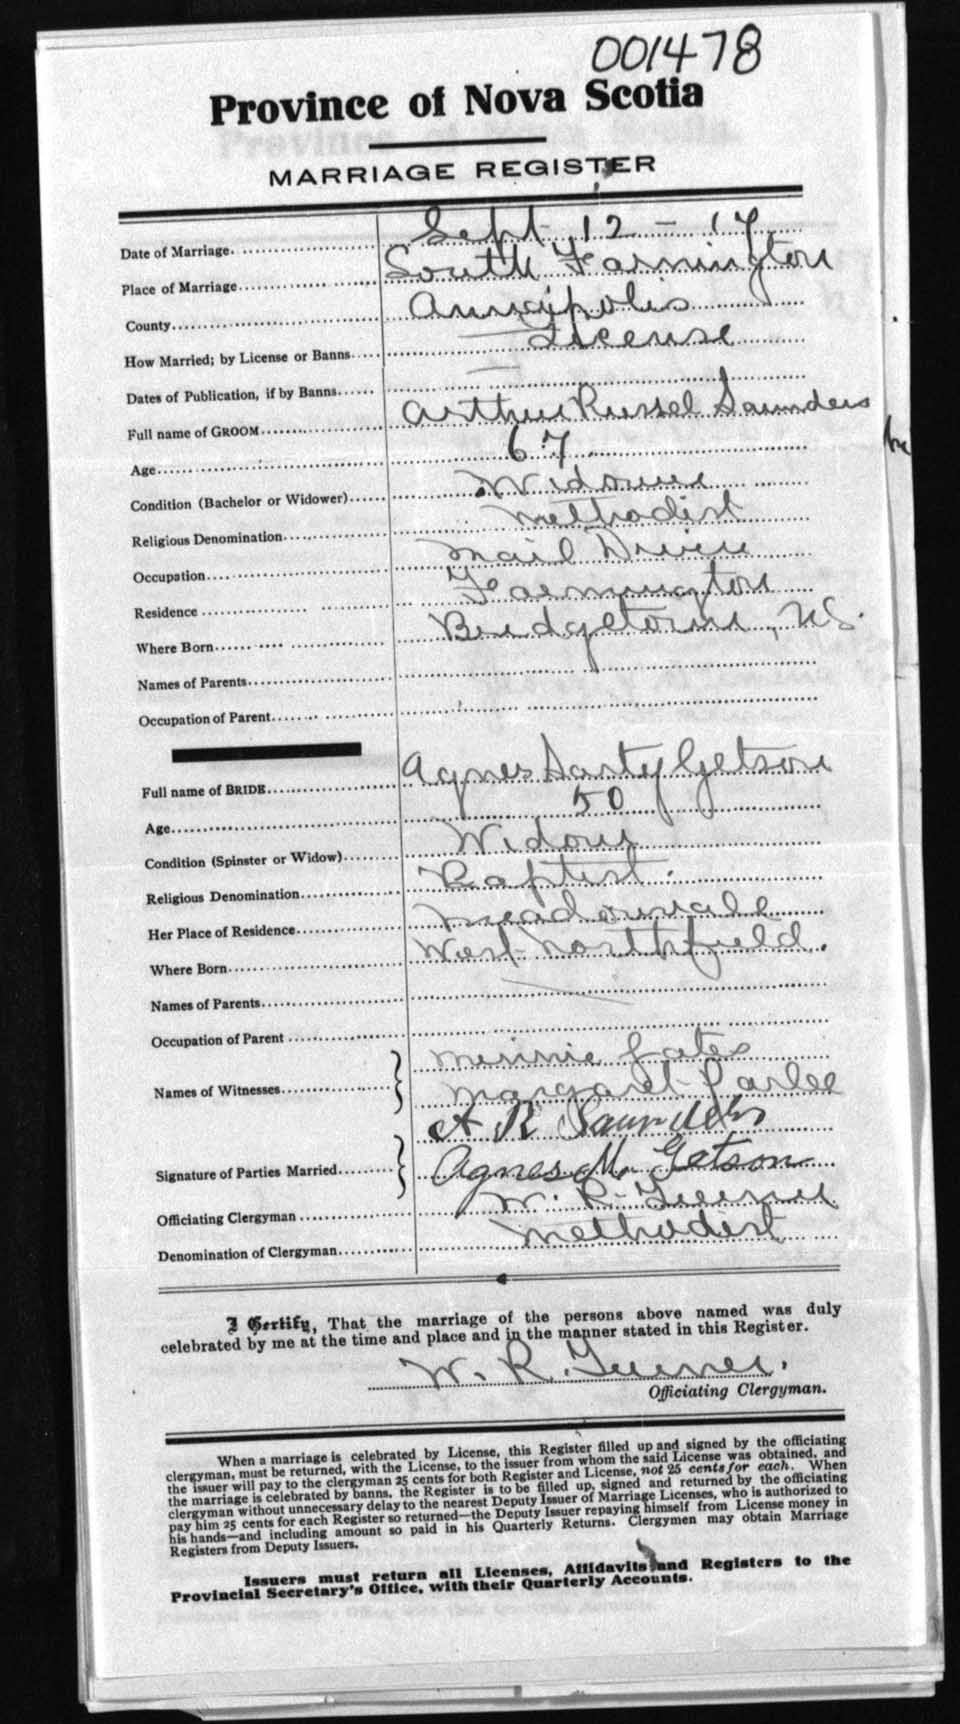 001478
Province of Nova Scotia
MARRIAGE REGISTER
Date of Marriage. Sept 12 - 17.
Place of Marriage South Farmington
County Annapolis
How Married; by License or Banns License
Dates of Publication, if by Banns
Full name of GROOM Arthur Russel Saunders
Age 67
Condition (Bachelor or Widower) Widower
Religious Denomination Methodist
Occupation Mail Driver
Residence Farmington
Where Born Bridgetown, N.S.
Names of Parents
Occupation of Parent
Full name of BRIDE Agnes Sarty Getson
Age 50
Condition (Spinster or Widow) Widow
Religious Denomination Baptist.
Her Place of Residence Meadowvale
Where Born West Northfield.
Names of Parents
Occupation of Parent
Names of Witnesses Minnie Gates
Margaret Parlee
Signature of Parties Married A R Saunders
Agnes M. Getson
Officiating Clergyman W. R. Turner
Denomination of Clergyman Methodist
I Certify, That the marriage of the persons above named was duly
celebrated by me at the time and place and in the manner stated in this Register.
W. R. Turner.
Officiating Clergyman.
When a marriage is celebrated by License, this Register filled up and signed by the officiating
clergyman, must be returned, with the License, to the issuer from whom the said License was obtained, and
the issuer will pay to the clergyman 25 cents for both Register and License, not 25 cents for each. When
the marriage is celebrated by banns, the Register is to be filled up, signed and returned by the officiating
clergyman without unnecessary delay to the nearest Deputy Issuer of Marriage Licenses, who is authorized to
pay him 25 cents for each Register so returned—the Deputy Issuer repaying himself from License money in
his hands—and including amount so paid in his Quarterly Returns. Clergymen may obtain Marriage
Registers from Deputy Issuers.
Issuers must return all Licenses, Affidavits and Registers to the
Provincial Secretary's Office, with their Quarterly Accounts.